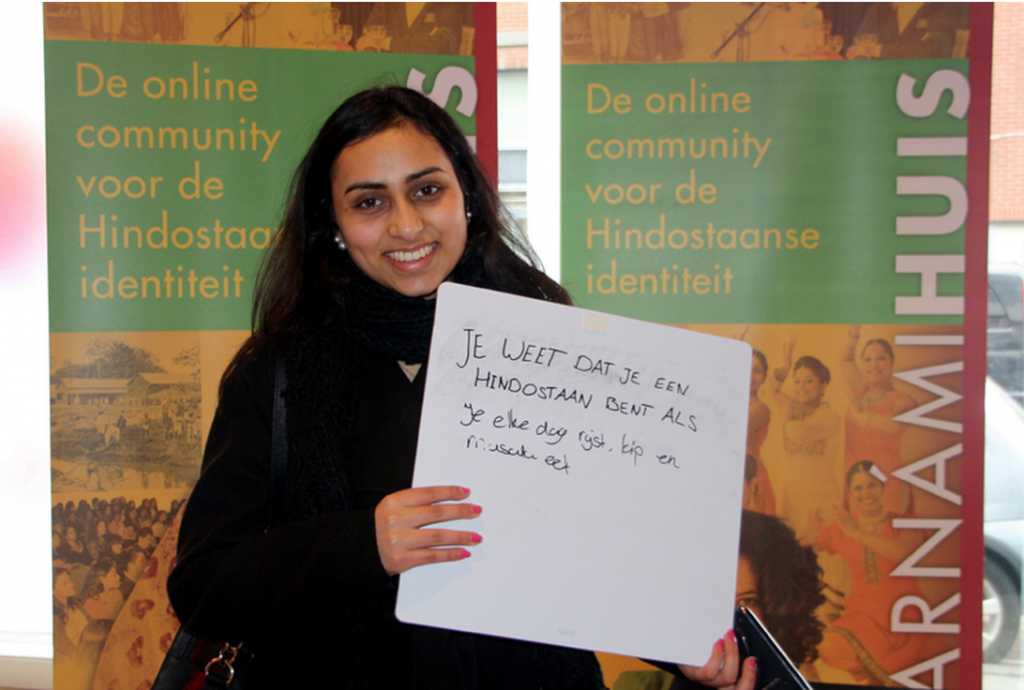 De online
community
voor de
Hindostaa
identiteit
IS
JE WEET DAT JE EEN
HINDOSTAAN BENT ALS
je elke dag rijst, kip en
masala eet
De online
community
voor de
Hindostaanse
identiteit
ARNÁMIHUIS